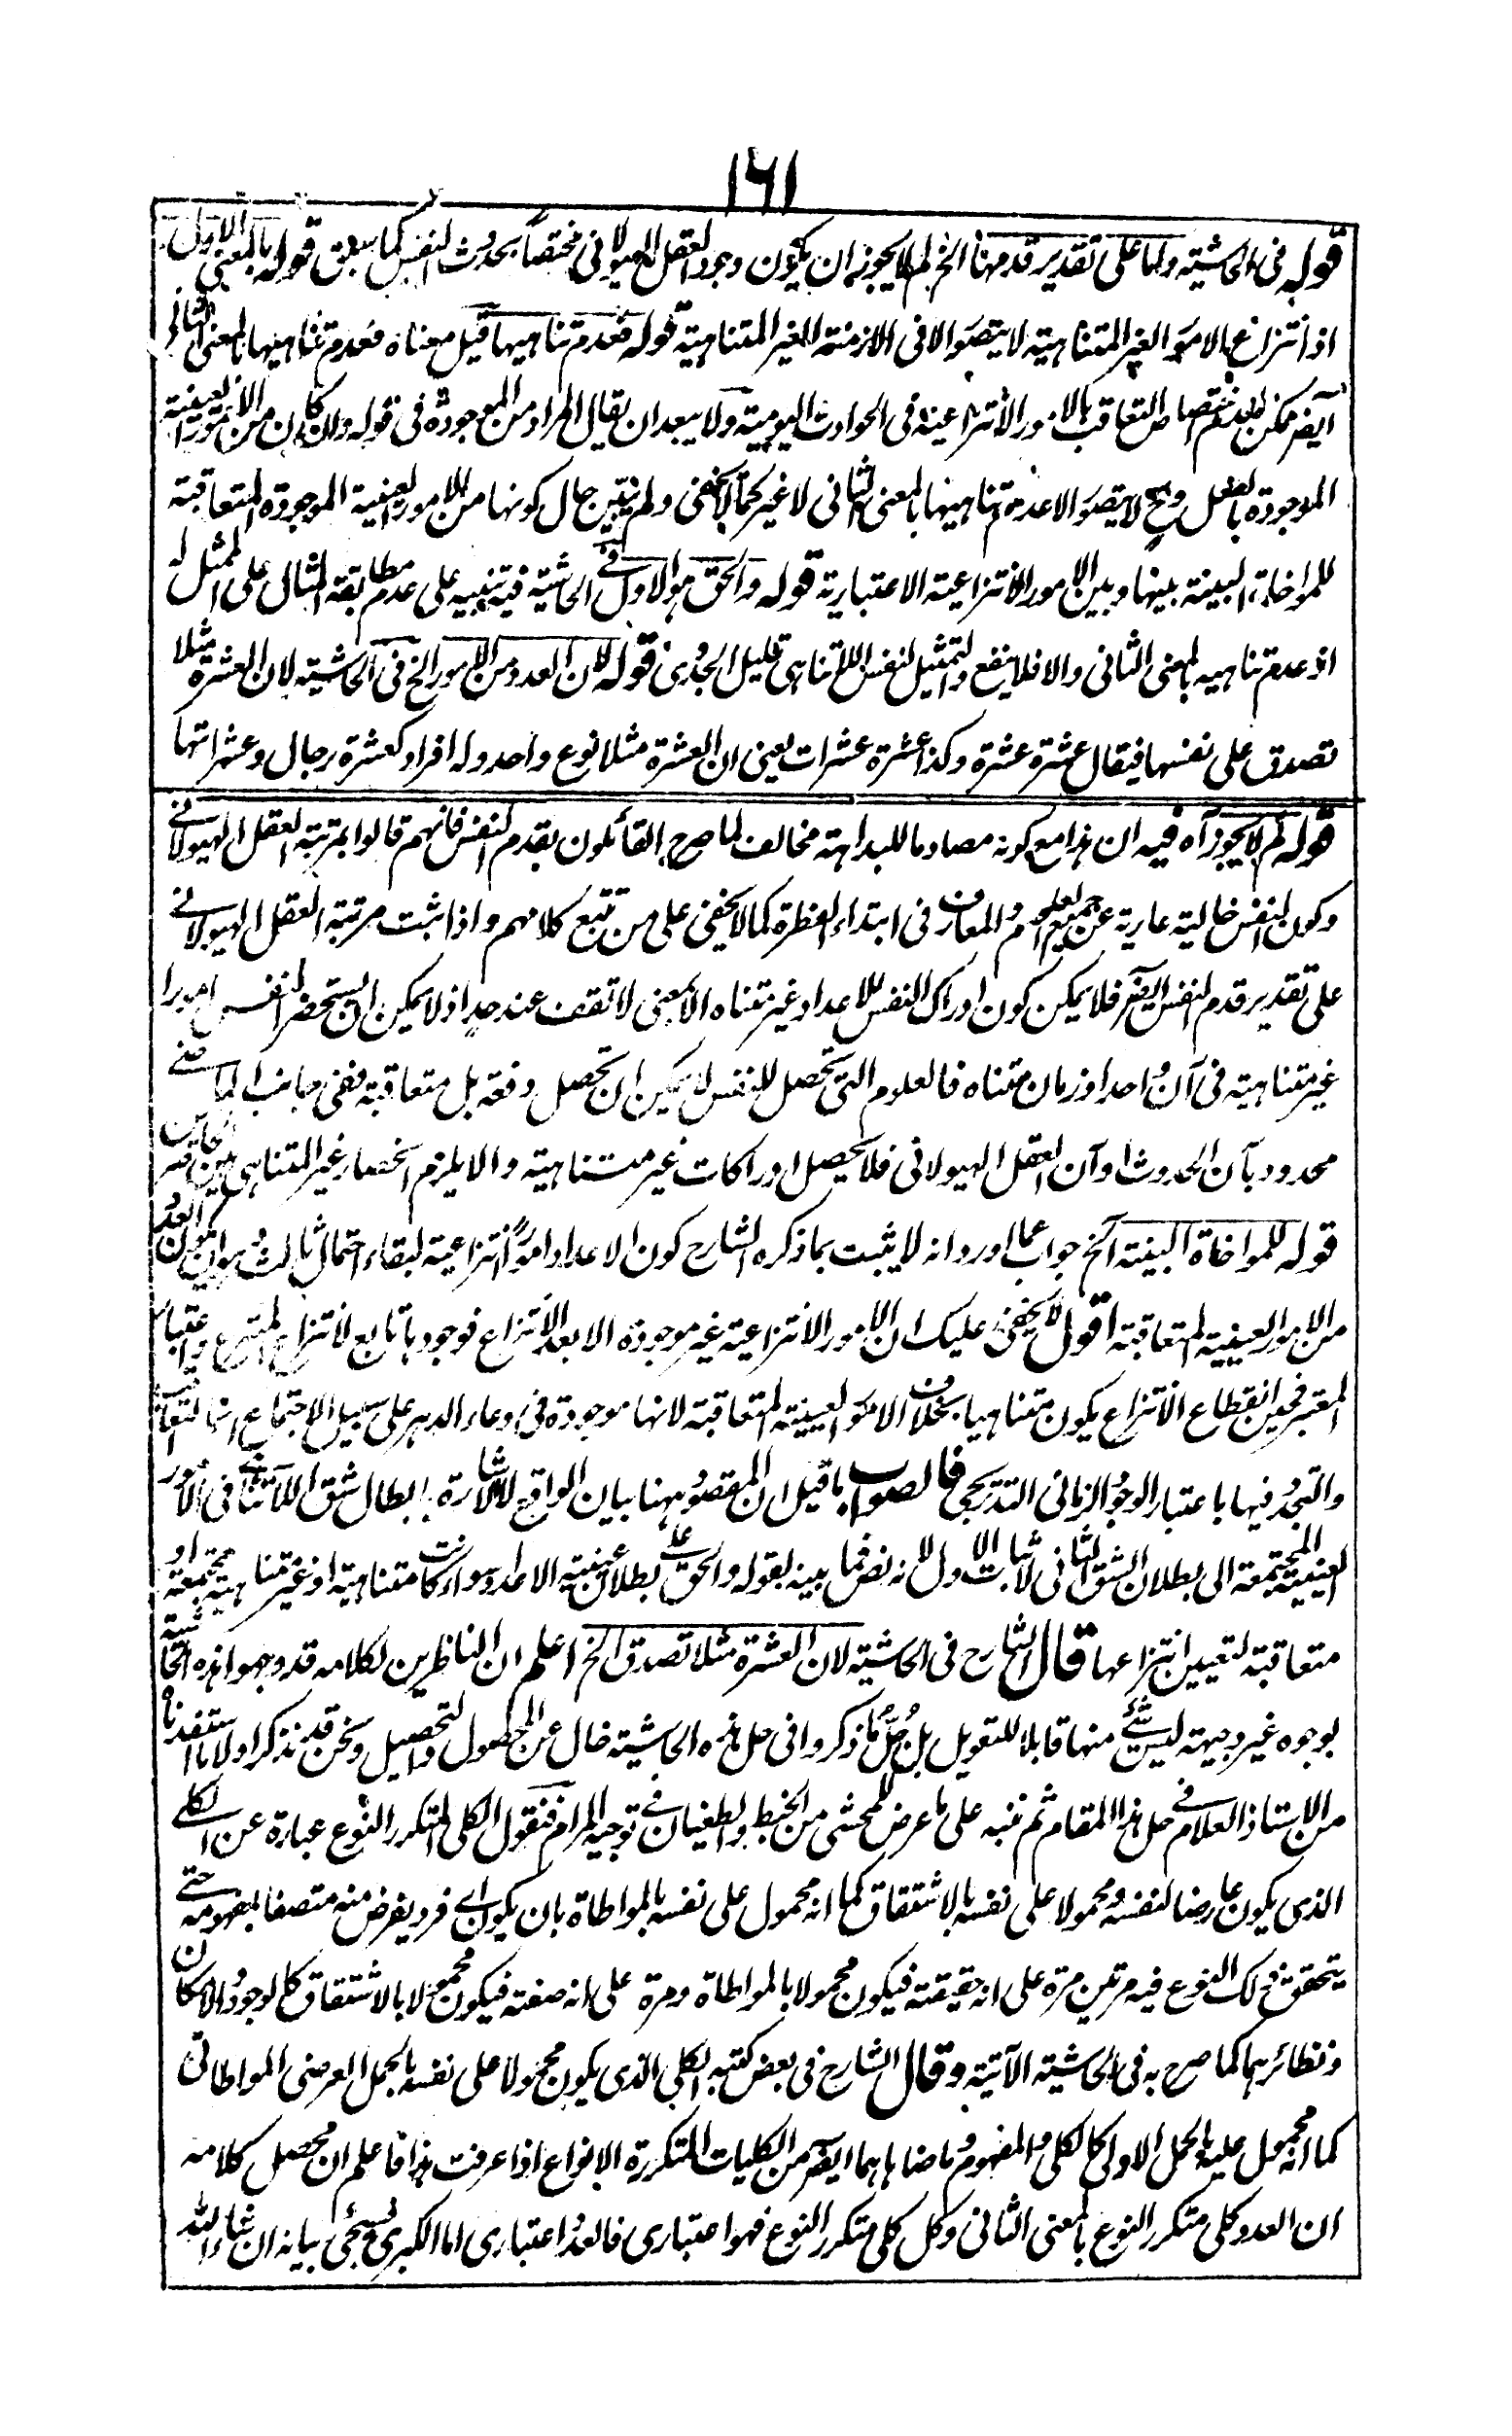 ١٦١
قوله فى الحاشية واما على تقدير قدمها الخ لم لا يجوز ان يكون وجود العقل الهيولانى مختصا بحدوث النفس كما سبق قوله بالمعنى الاول
اذ انتزاع الامور الغير المتناهية لا يتصور الا فى الازمنة الغير المتناهية قوله فعدم تناهيها قيل معناه فعدم تناهيها بالمعنى الثانى
ايضا ممكن لعدم اختصاص التعاقب بالامور الانتزاعية فى الحوادث اليومية ولا يبعد ان يقال المراد من الموجودة فى قوله وان كان من الامور العينية
الموجودة بالفعل وح لا يتصور الا عدم تناهيها بالمعنى الثانى لا غير كما لا يخفى ولم يتبين حال كونها من الامور العينية الموجودة المتعاقبة
للمواخاة البينة بينها وبين الامور الانتزاعية الاعتبارية قوله والحق هو الاول فى الحاشية فيه تنبيه على عدم مطابقة المثال على الممثل له
اذ عدم تناهيه بالمعنى الثانى والا فلا ينفع والتمثيل لنفس اللاتناهى قليل الجدوى قوله لان العدد من الامور الخ فى الحاشية لان العشرة مثلا
تصدق على نفسها فيقال عشرة عشرة وكذا عشرة عشرات يعنى ان العشرة مثلا نوع واحد وله افراد كعشرة رجال وعشراتها
قوله لم لا يجوز آه فيه ان هذا مع كونه مصادما للبداهة مخالف لما صرح به القائلون بقدم النفس فانهم قالوا بمرتبة العقل الهيولانى
وكون النفس خالية عارية عن جميع العلوم والمعارف فى ابتداء الفطرة كما لا يخفى على من تتبع كلامهم واذا ثبت مرتبة العقل الهيولانى
على تقدير قدم النفس ايضا فلا يمكن كون ادراك النفس للاعداد غير متناه الا بمعنى لا تقف عند حد اذ لا يمكن ان يستحضر النفس امورا
غير متناهية فى آن واحد او زمان متناه فالعلوم التى تحصل للنفس لا يمكن ان تحصل دفعة بل متعاقبة ففى جانب الماضى
محدود بآن الحدوث او آن العقل الهيولانى فلا يحصل ادراكات غير متناهية والا يلزم انحصار غير المتناهى بين حاصرين
قوله للمواخاة البينة الخ جواب عما اورد انه لا يثبت بما ذكره الشارح كون الاعداد امورا انتزاعية لبقاء احتمال ثالث هو ان يكون العدد
من الامور العينية المتعاقبة اقول لا يخفى عليك ان الامور الانتزاعية غير موجودة الا بعد الانتزاع فوجودها تابع لانتزاع المنتزع واعتبار
المعتبر فحين انقطاع الانتزاع يكون متناهيا بخلاف الامور العينية المتعاقبة لانها موجودة فى وعاء الدهر على سبيل الاجتماع انما التعاقب
والتجدد فيها باعتبار الوجود الزمانى التدريجى فالصواب ما قيل ان المقصود ههنا بيان الواقع لا الاشارة بابطال شق اللاتناهى فى الامور
العينية المجتمعة الى بطلان الشق الثانى لاثبات الاول لانه نص فيما بينه بقوله والحق على بطلان عينية الاعداد سواء كانت متناهية او غير متناهية مجتمعة او
متعاقبة لتعيين انتزاعها قال الشارح فى الحاشية لان العشرة مثلا تصدق الخ اعلم ان الناظرين لكلامه قد وجهوا هذه الحاشية
بوجوه غير وجيهة ليس شئ منها قابلا للتعويل بل جل ما ذكروا فى حل هذه الحاشية خال عن المحصول والتحصيل ونحن قد نذكر اولا ما استفدناه
من الاستاذ العلام فى حل هذا المقام ثم ننبه على ما عرض للمحشى من الخبط والطغيان فى توجيه المرام فنقول الكلى المتكرر النوع عبارة عن الكلى
الذى يكون عارضا لنفسه ومحمولا على نفسه بالاشتقاق كما انه محمول على نفسه بالمواطاة بان يكون اى فرد يفرض منه متصفا بمفهومه حتى
يتحقق ذلك النوع فيه مرتين مرة على انه حقيقته فيكون محمولا بالمواطاة ومرة على انه صفته فيكون محمولا بالاشتقاق كالوجود والامكان
ونظائرهما كما صرح به فى الحاشية الآتية وقال الشارح فى بعض كتبه الكلى الذى يكون محمولا على نفسه بالحمل العرضى المواطاتى
كما انه محمول عليه بالحمل الاولى كالكلى والمفهوم وما ضاهاهما ايضا من الكليات المتكررة الانواع اذا عرفت هذا فاعلم ان محصل كلامه
ان العدد كلى متكرر النوع بالمعنى الثانى وكل كلى متكرر النوع فهو اعتبارى فالعدد اعتبارى اما الكبرى فسيجئ بيانه ان شاء الله